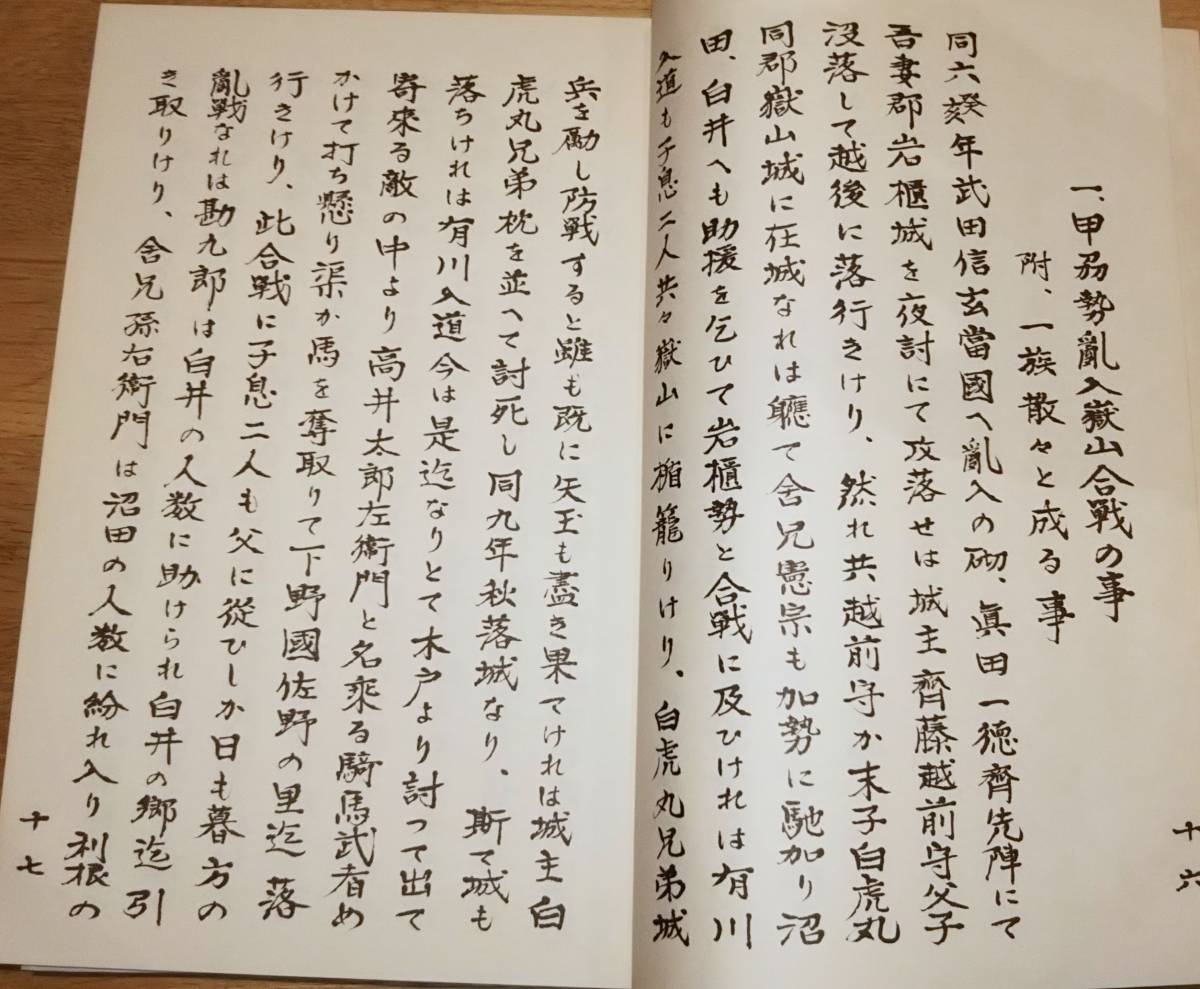 一、甲刕勢亂入嶽山合戰の事
附、一族散々と成る事
同六癸年武田信玄當國へ亂入の砌、眞田一德齊先陣にて
吾妻郡岩櫃城を夜討にて攻落せは城主齊藤越前守父子
没落して越後に落行きけり、然れ共越前守か末子白虎丸
同郡嶽山城に在城なれは軈て舍兄憲宗も加勢に馳加り沼
田、白井へも助援を乞ひて岩櫃勢と合戰に及ひけれは有川
入道も子息二人共々嶽山に楯籠りけり、白虎丸兄弟城
十六
兵を勵し防戦すると雖も既に矢玉も盡き果てけれは城主白
虎丸兄弟枕を並へて討死し同九年秋落城なり、斯て城も
落ちけれは有川入道今は是迄なりとて木戸より討つて出て
寄來る敵の中より高井太郎左衛門と名乘る騎馬武者め
かけて打ち懸り渠か馬を奪取りて下野國佐野の里迄落
行きけり、此合戰に子息二人も父に從ひしか日も暮方の
亂戰なれは勘九郎は白井の人数に助けられ白井の郷迄引
き取りけり、舍兄孫右衛門は沼田の人数に紛れ入り利根の
十七